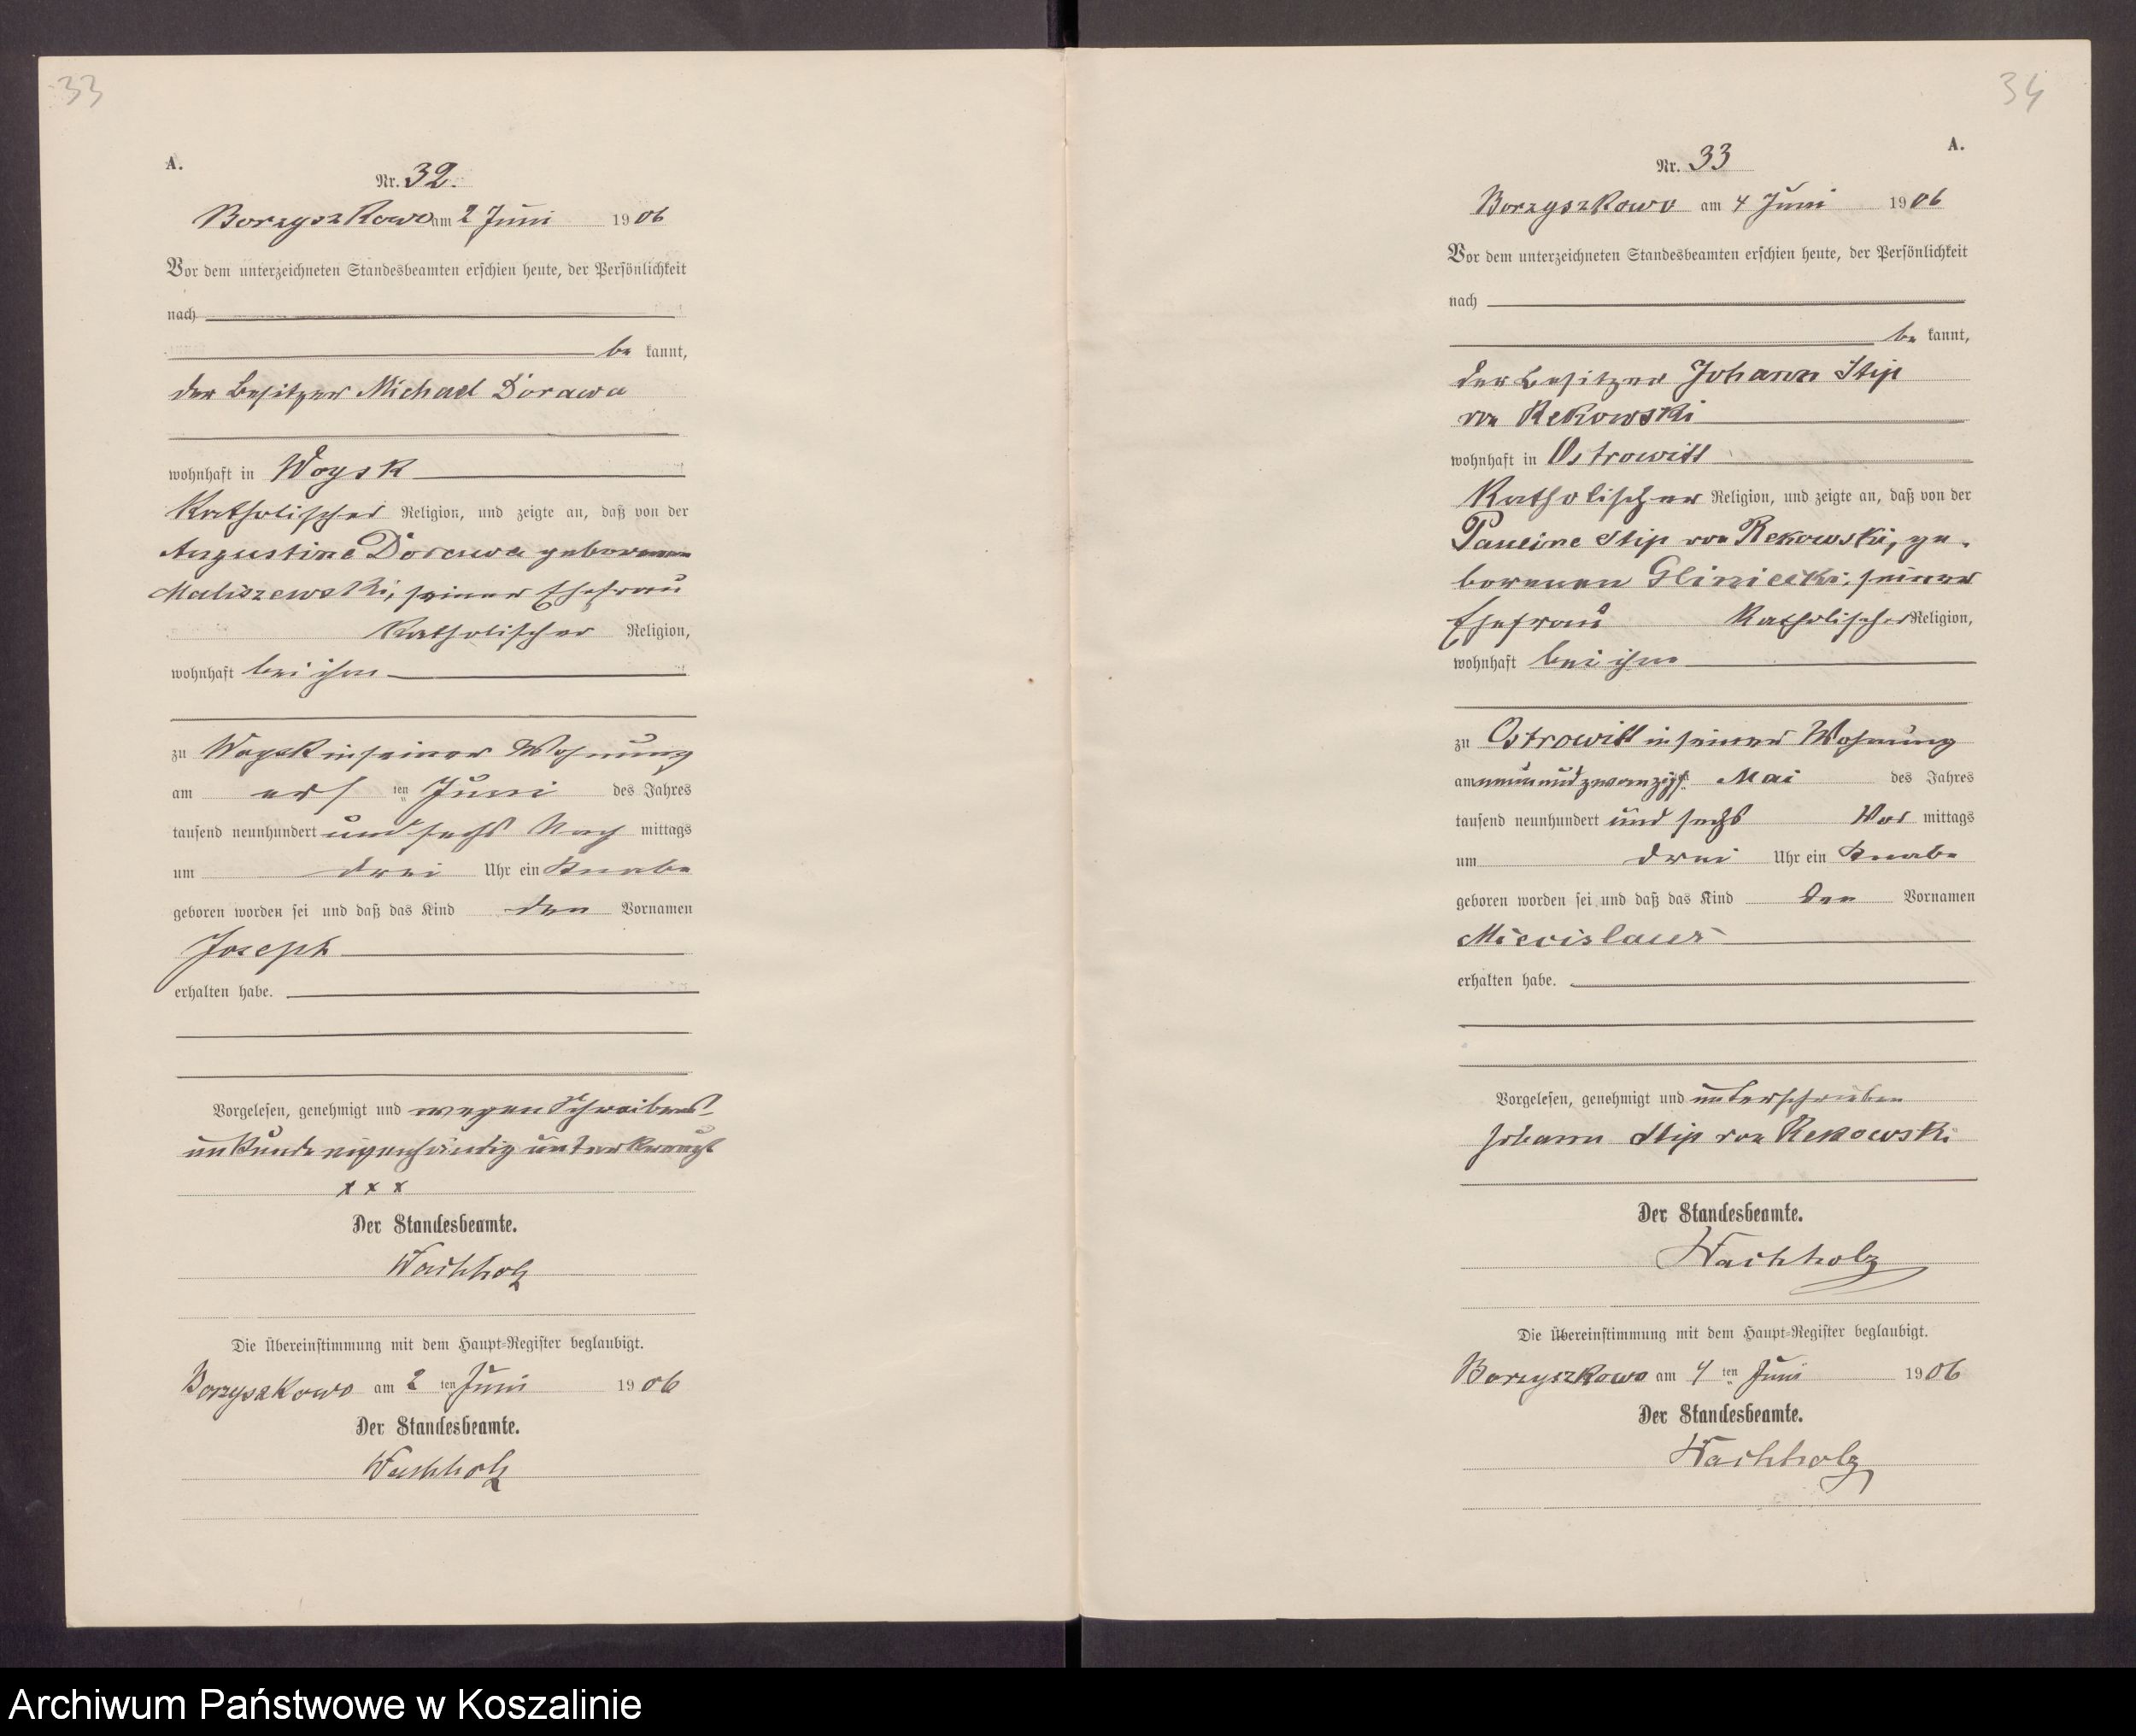 33
A.
Nr. 32.
Borzyszkowo am 2 Juni 1906
Vor dem unterzeichneten Standesbeamten erschien heute, der Persönlichkeit
nach
be kannt,
der Besitzer Michael Dorawa
wohnhaft in Woysk
katholischer Religion, und zeigte an, daß von der
Augustine Dorawa geborenen
Maliszewski, seiner Ehefrau
katholischer Religion,
wohnhaft bei ihm
zu Woysk in seiner Wohnung
am ersten Juni des Jahres
tausend neunhundert und sechs Nach mittags
um drei Uhr ein Knabe
geboren worden sei und daß das Kind den Vornamen
Joseph
erhalten habe.
Vorgelesen, genehmigt und wegen Schreibens-
unkunde eigenhändig unterkreuzt
x x x
Der Standesbeamte.
Wachholz
Die Übereinstimmung mit dem Haupt-Register beglaubigt.
Borzyszkowo am 2 ten Juni 1906
Der Standesbeamte.
Wachholz
34
A.
Nr. 33
Borzyszkowo am 4 Juni 1906
Vor dem unterzeichneten Standesbeamten erschien heute, der Persönlichkeit
nach
be kannt,
der Besitzer Johann Stip
von Rekowski
wohnhaft in Ostrowitt
katholischer Religion, und zeigte an, daß von der
Pauline Stip von Rekowski, ge-
borenen Gliniecki, seiner
Ehefrau katholischer Religion,
wohnhaft bei ihm
zu Ostrowitt in seiner Wohnung
am neunundzwanzigst. Mai des Jahres
tausend neunhundert und sechs Vor mittags
um drei Uhr ein Knabe
geboren worden sei und daß das Kind den Vornamen
Miecislaus
erhalten habe.
Vorgelesen, genehmigt und unterschrieben
Johann Stip von Rekowski
Der Standesbeamte.
Wachholz
Die Übereinstimmung mit dem Haupt-Register beglaubigt.
Borzyszkowo am 4 ten Juni 1906
Der Standesbeamte.
Wachholz
Archiwum Państwowe w Koszalinie